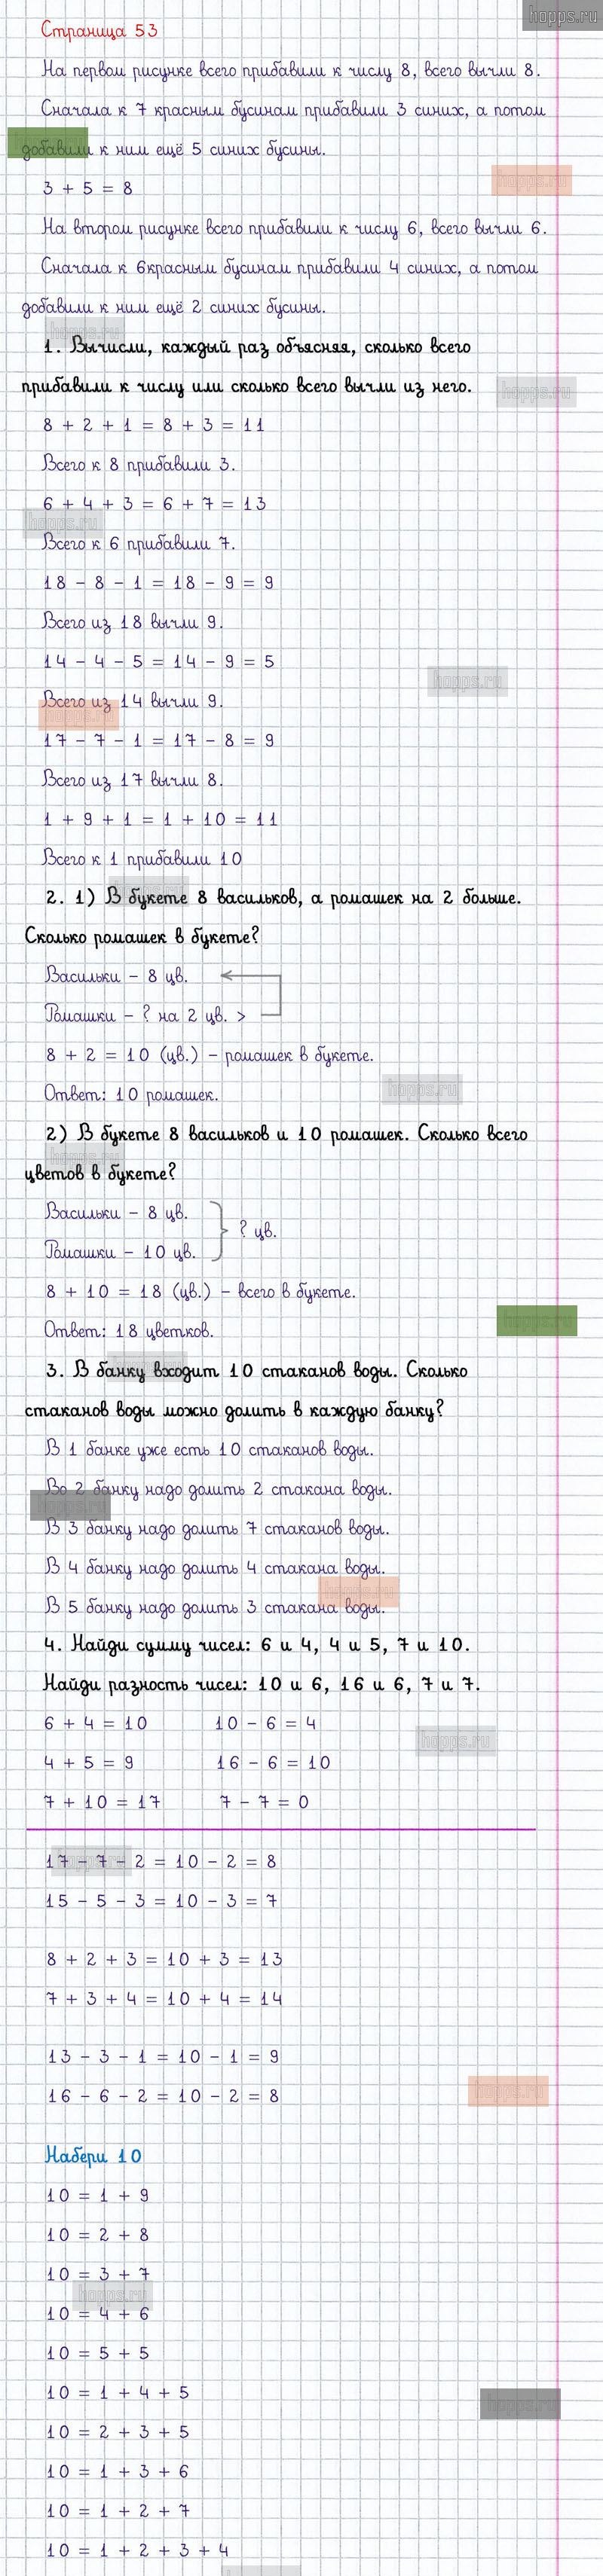 hopps.ru
Страница 53
На первом рисунке всего прибавили к числу 8, всего вычли 8.
Сначала к 7 красным бусинам прибавили 3 синих, а потом
добавили к ним ещё 5 синих бусины.
hopps.ru
3 + 5 = 8
На втором рисунке всего прибавили к числу 6, всего вычли 6.
Сначала к 6красным бусинам прибавили 4 синих, а потом
добавили к ним ещё 2 синих бусины.
hopps.ru
1. Вычисли, каждый раз объясняя, сколько всего
прибавили к числу или сколько всего вычли из него.
hopps.ru
8 + 2 + 1 = 8 + 3 = 11
Всего к 8 прибавили 3.
6 + 4 + 3 = 6 + 7 = 13
hopps.ru
Всего к 6 прибавили 7.
18 - 8 - 1 = 18 - 9 = 9
Всего из 18 вычли 9.
14 - 4 - 5 = 14 - 9 = 5
hopps.ru
Всего из 14 вычли 9.
hopps.ru
17 - 7 - 1 = 17 - 8 = 9
Всего из 17 вычли 8.
1 + 9 + 1 = 1 + 10 = 11
Всего к 1 прибавили 10
hopps.ru
2. 1) В букете 8 васильков, а ромашек на 2 больше.
Сколько ромашек в букете?
Васильки - 8 цв.
Ромашки - ? на 2 цв. >
8 + 2 = 10 (цв.) - ромашек в букете.
hopps.ru
Ответ: 10 ромашек.
2) В букете 8 васильков и 10 ромашек. Сколько всего
hopps.ru
цветов в букете?
Васильки - 8 цв.
? цв.
Ромашки - 10 цв.
8 + 10 = 18 (цв.) - всего в букете.
hopps.ru
Ответ: 18 цветков.
hopps.ru
3. В банку входит 10 стаканов воды. Сколько
стаканов воды можно долить в каждую банку?
В 1 банке уже есть 10 стаканов воды.
Во 2 банку надо долить 2 стакана воды.
hopps.ru
В 3 банку надо долить 7 стаканов воды.
В 4 банку надо долить 4 стакана воды.
hopps.ru
В 5 банку надо долить 3 стакана воды.
4. Найди сумму чисел: 6 и 4, 4 и 5, 7 и 10.
Найди разность чисел: 10 и 6, 16 и 6, 7 и 7.
6 + 4 = 10 10 - 6 = 4
hopps.ru
4 + 5 = 9 16 - 6 = 10
7 + 10 = 17 7 - 7 = 0
hopps.ru
17 - 7 - 2 = 10 - 2 = 8
15 - 5 - 3 = 10 - 3 = 7
8 + 2 + 3 = 10 + 3 = 13
7 + 3 + 4 = 10 + 4 = 14
13 - 3 - 1 = 10 - 1 = 9
16 - 6 - 2 = 10 - 2 = 8
hopps.ru
Набери 10
10 = 1 + 9
10 = 2 + 8
10 = 3 + 7
hopps.ru
10 = 4 + 6
10 = 5 + 5
10 = 1 + 4 + 5
hopps.ru
10 = 2 + 3 + 5
10 = 1 + 3 + 6
10 = 1 + 2 + 7
10 = 1 + 2 + 3 + 4